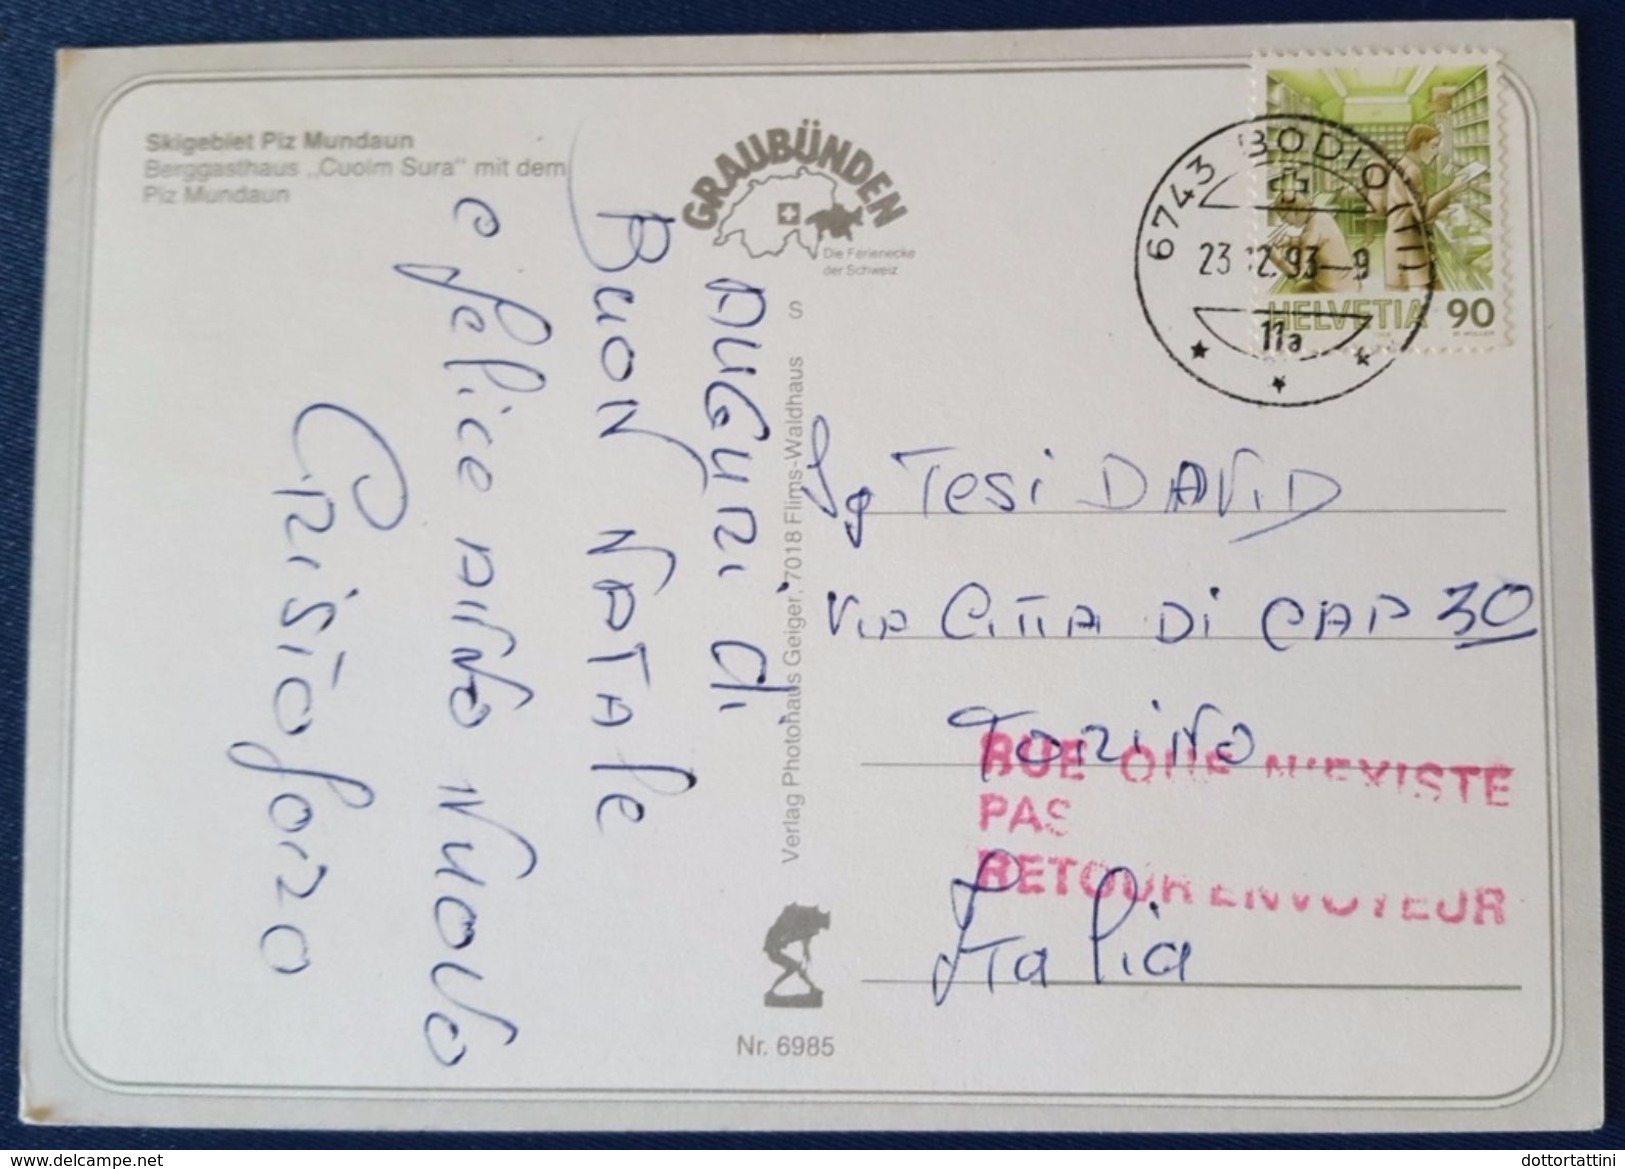 Skigebiet Piz Mundaun
Berggasthaus „Cuolm Sura" mit dem
Piz Mundaun
GRAUBÜNDEN
Die Ferienecke
der Schweiz
S
Verlag Photohaus Geiger, 7018 Flims-Waldhaus
Nr. 6985
AUGURI di
BUON NATALE
e felice ANNO NUOVO
CRISTOFORO
6743 BODIO (TI)
23.12.93-9
11a
HELVETIA 90
Sg TESi DAVID
VIA CITTA Di CAP 30
TORINO
ITalia
RUE QUE N'EXISTE
PAS
RETOUR ENVOYEUR
www.delcampe.net
dottortattini